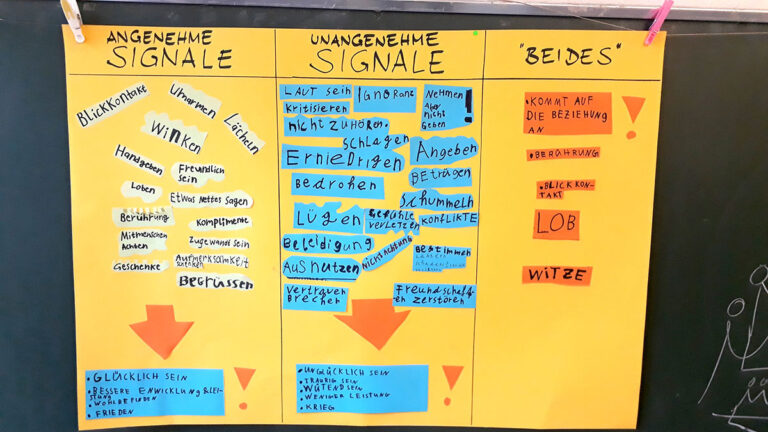 ANGENEHME
SIGNALE
Blickkontakt
Umarmen
Lächeln
Winken
Handgeben
Freundlich
sein
Loben
Etwas nettes sagen
Berührung
Komplimente
Mitmenschen
Achten
Zugewandt sein
Geschenke
Aufmerksamkeit
schenken
Begrüssen
GLÜCKLICH SEIN
BESSERE ENWICKLUNG & LEI-
STUNG
WOHLBEFINDEN
FRIEDEN
UNANGENEHME
SIGNALE
LAUT sein
Ignoranz
Nehmen
Aber
nicht
Geben
!
Kritisieren
nicht zuhören.
SCHLAGEN
Erniedrigen
Angeben
Beträgen
Bedrohen
Schummeln
Lügen
Gefühle
verletzen
KONFLIKTE
Beleidigung
Nichtachtung
Bestimmen
Ausnutzen
Vertrauen
Brechen
Freundschaft
en zerstören
UNGLÜCKLICH SEIN
TRAURIG SEIN
WÜTEND SEIN
WENIGER LEISTUNG
KRIEG
"BEIDES"
• KOMMT AUF
DIE BEZIEHUNG
AN
• BERÜHRUNG
• BLICKKON-
TAKT
LOB
WITZE